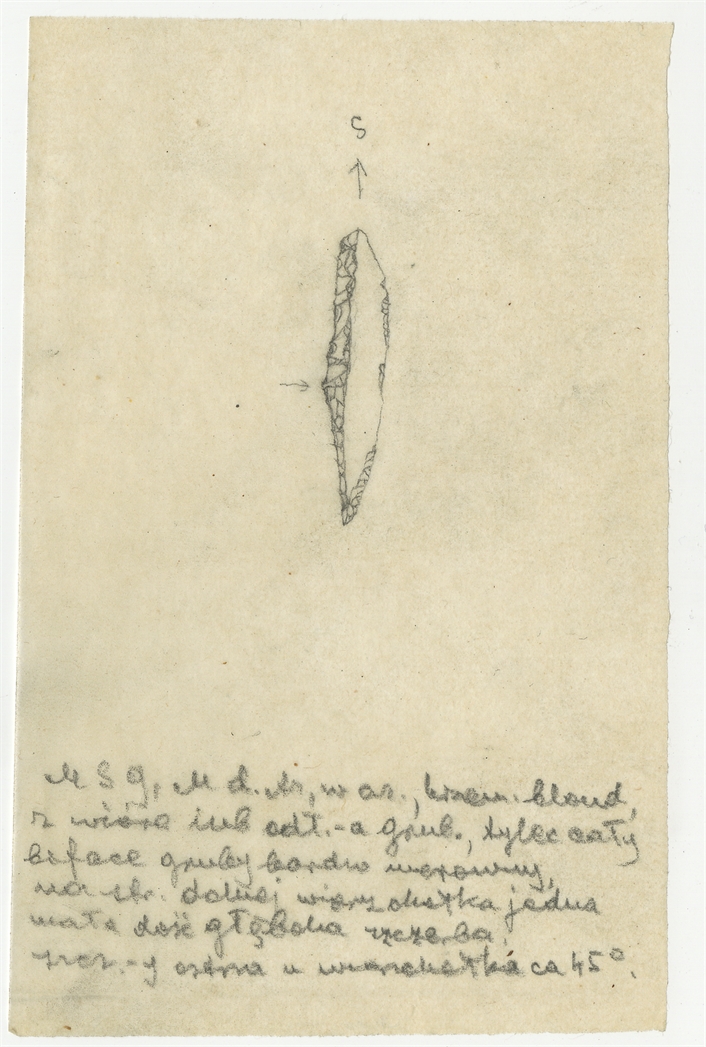 S
M S G, M d. tr, w as., krzem. blond,
z wióra lub odł.-a grub., tylec cały
biface gruby bardzo nierówny,
na str. dolnej wierzchołka jedna
mała dość głęboka szczerba.
y ostrza u wierzchołka ca 45°.